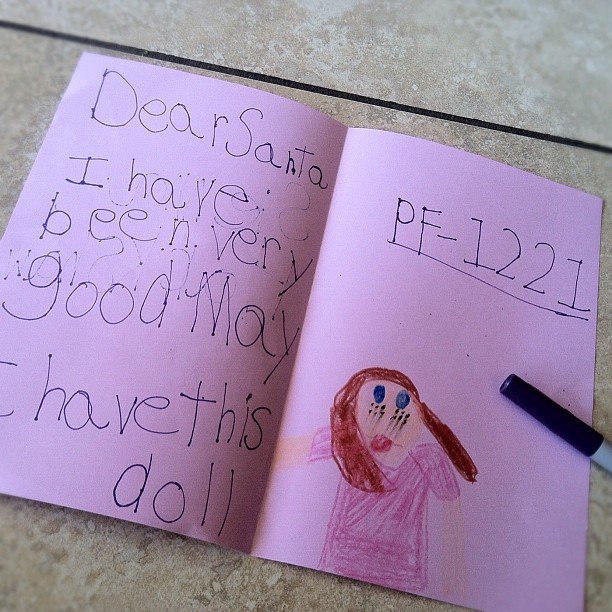 Dear Santa
I have
been very
good May
I have this
doll
PF-1221